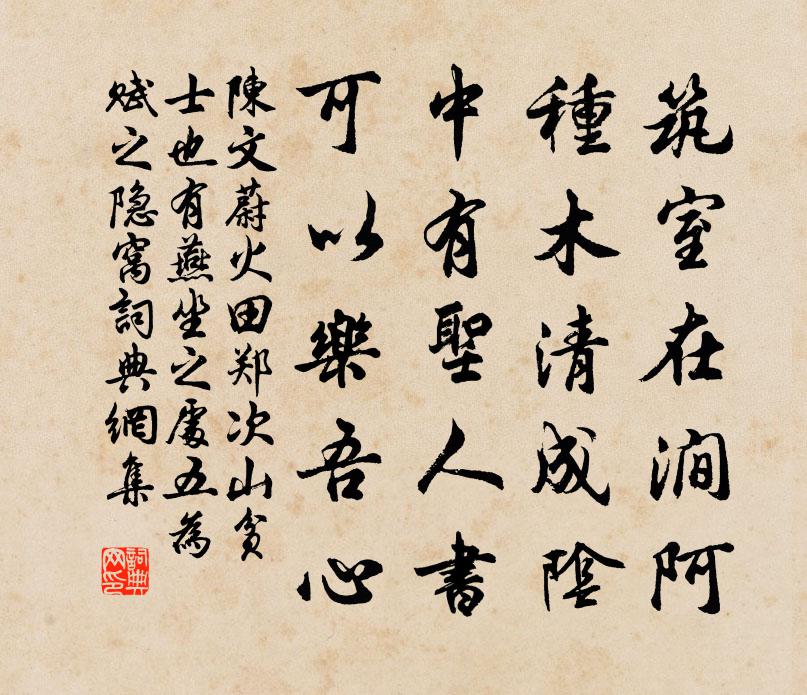 筑室在涧阿
種木清成陰
中有聖人書
可以樂吾心
陳文蔚火田郑次山貧
士也有燕坐之處五為
赋之隐窩詞典網集
詞典网印